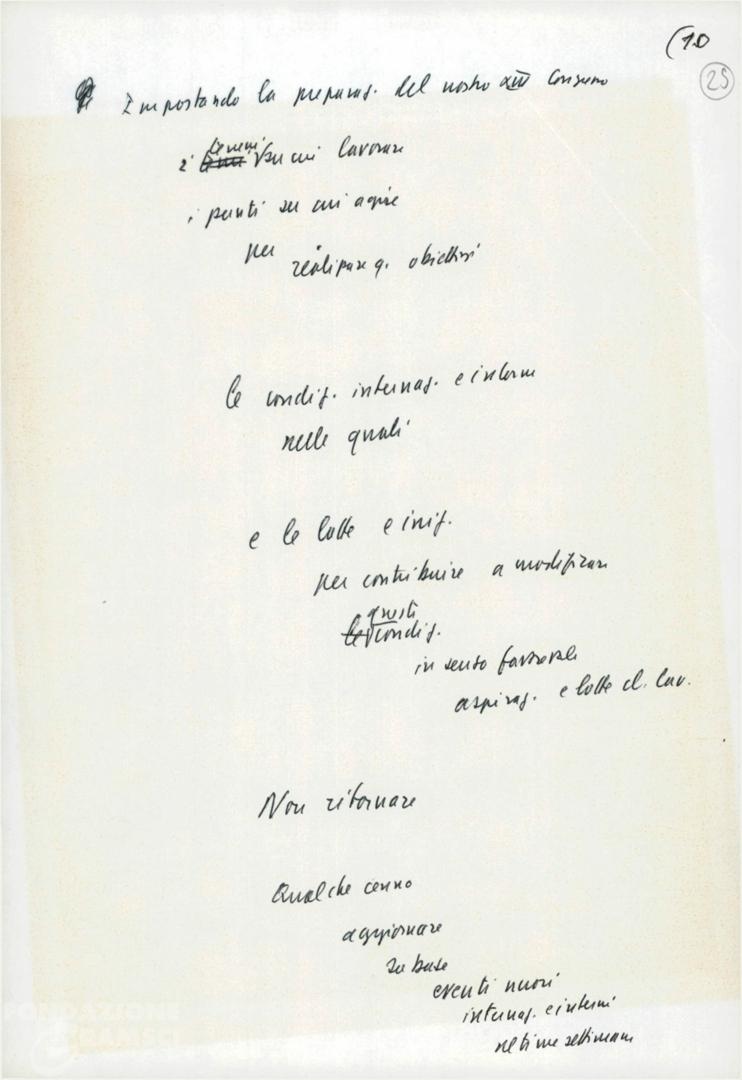 (10
25
Impostando la preparaz. del nostro XIII Congresso
i terreni su cui lavorare
i punti su cui agire
per realizzare q. obiettivi
le condiz. internaz. e interne
nelle quali
e le lotte e iniz.
per contribuire a modificare
queste
le condiz.
in senso favorevole
aspiraz. e lotte cl. lav.
Non ritornare
Qualche cenno
aggiornare
su base
eventi nuovi
internaz. e interni
ultime settimane
FONDAZIONE
GRAMSCI